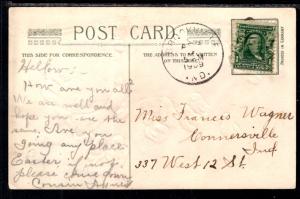 POST CARD.
THIS SIDE FOR CORRESPONDENCE
THE ADDRESS TO BE
Hellow:-
How are you all?
We are well and
hope you are the
same. Are you
going any place
Easter if not
please come down
Cousin
Miss Frances Wagner
Connersville
Ind
337 West 12 St.